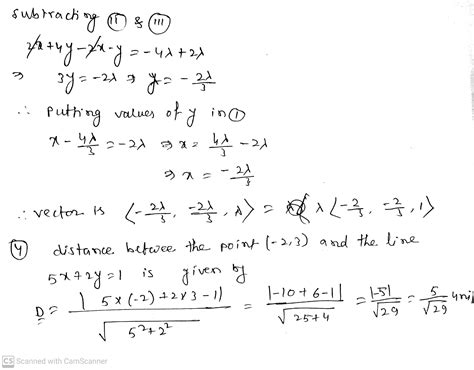 subtracting (ii) & (iii)
2x+4y-2x-y = -4λ+2λ
⇒ 3y = -2λ ⇒ y = -2λ/3
∴ putting values of y in ①
x - 4λ/3 = -2λ ⇒ x = 4λ/3 - 2λ
⇒ x = -2λ/3
∴ vector is ⟨-2λ/3, -2λ/3, λ⟩ = λ⟨-2/3, -2/3, 1⟩
④ distance between the point (-2,3) and the line
5x+2y=1 is given by
D = |5×(-2)+2×3-1| / √5²+2² = |-10+6-1| / √25+4 = |-5| / √29 = 5/√29 unit
CS Scanned with CamScanner